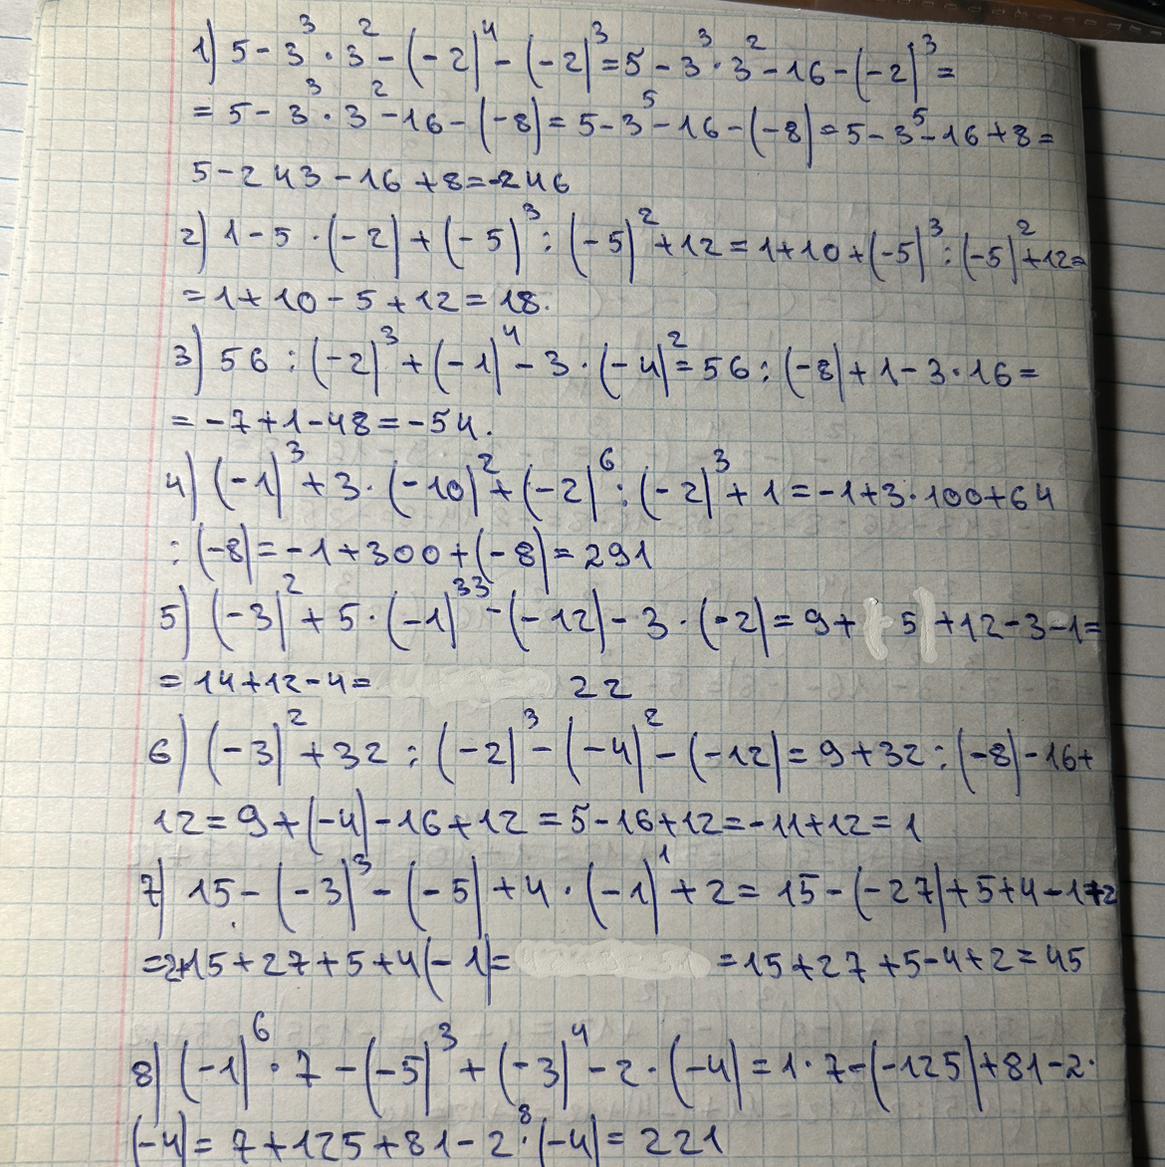 1) 5 - 3³ · 3² - (-2)⁴ - (-2)³ = 5 - 3³ · 3² - 16 - (-2)³ =
= 5 - 3³ · 3² - 16 - (-8) = 5 - 3⁵ - 16 - (-8) = 5 - 3⁵ - 16 + 8 =
5 - 243 - 16 + 8 = -246
2) 1 - 5 · (-2) + (-5)³ : (-5)² + 12 = 1 + 10 + (-5)³ : (-5)² + 12 =
= 1 + 10 - 5 + 12 = 18.
3) 56 : (-2)³ + (-1)⁴ - 3 · (-4)² = 56 : (-8) + 1 - 3 · 16 =
= -7 + 1 - 48 = -54.
4) (-1)³ + 3 · (-10)² + (-2)⁶ : (-2)³ + 1 = -1 + 3 · 100 + 64
: (-8) = -1 + 300 + (-8) = 291
5) (-3)² + 5 · (-1)³³ - (-12) - 3 · (-2) = 9 + ( 5) + 12 - 3 - 1 =
= 14 + 12 - 4 = 22
6) (-3)² + 32 : (-2)³ - (-4)² - (-12) = 9 + 32 : (-8) - 16 +
12 = 9 + (-4) - 16 + 12 = 5 - 16 + 12 = -11 + 12 = 1
7) 15 - (-3)³ - (-5) + 4 · (-1)¹ + 2 = 15 - (-27) + 5 + 4 - 1 + 2
= 2 + 15 + 27 + 5 + 4 (-1) = = 15 + 27 + 5 - 4 + 2 = 45
8) (-1)⁶ · 7 - (-5)³ + (-3)⁴ - 2 · (-4) = 1 · 7 - (-125) + 81 - 2 ·
(-4) = 7 + 125 + 81 - 2 · (-4) = 221